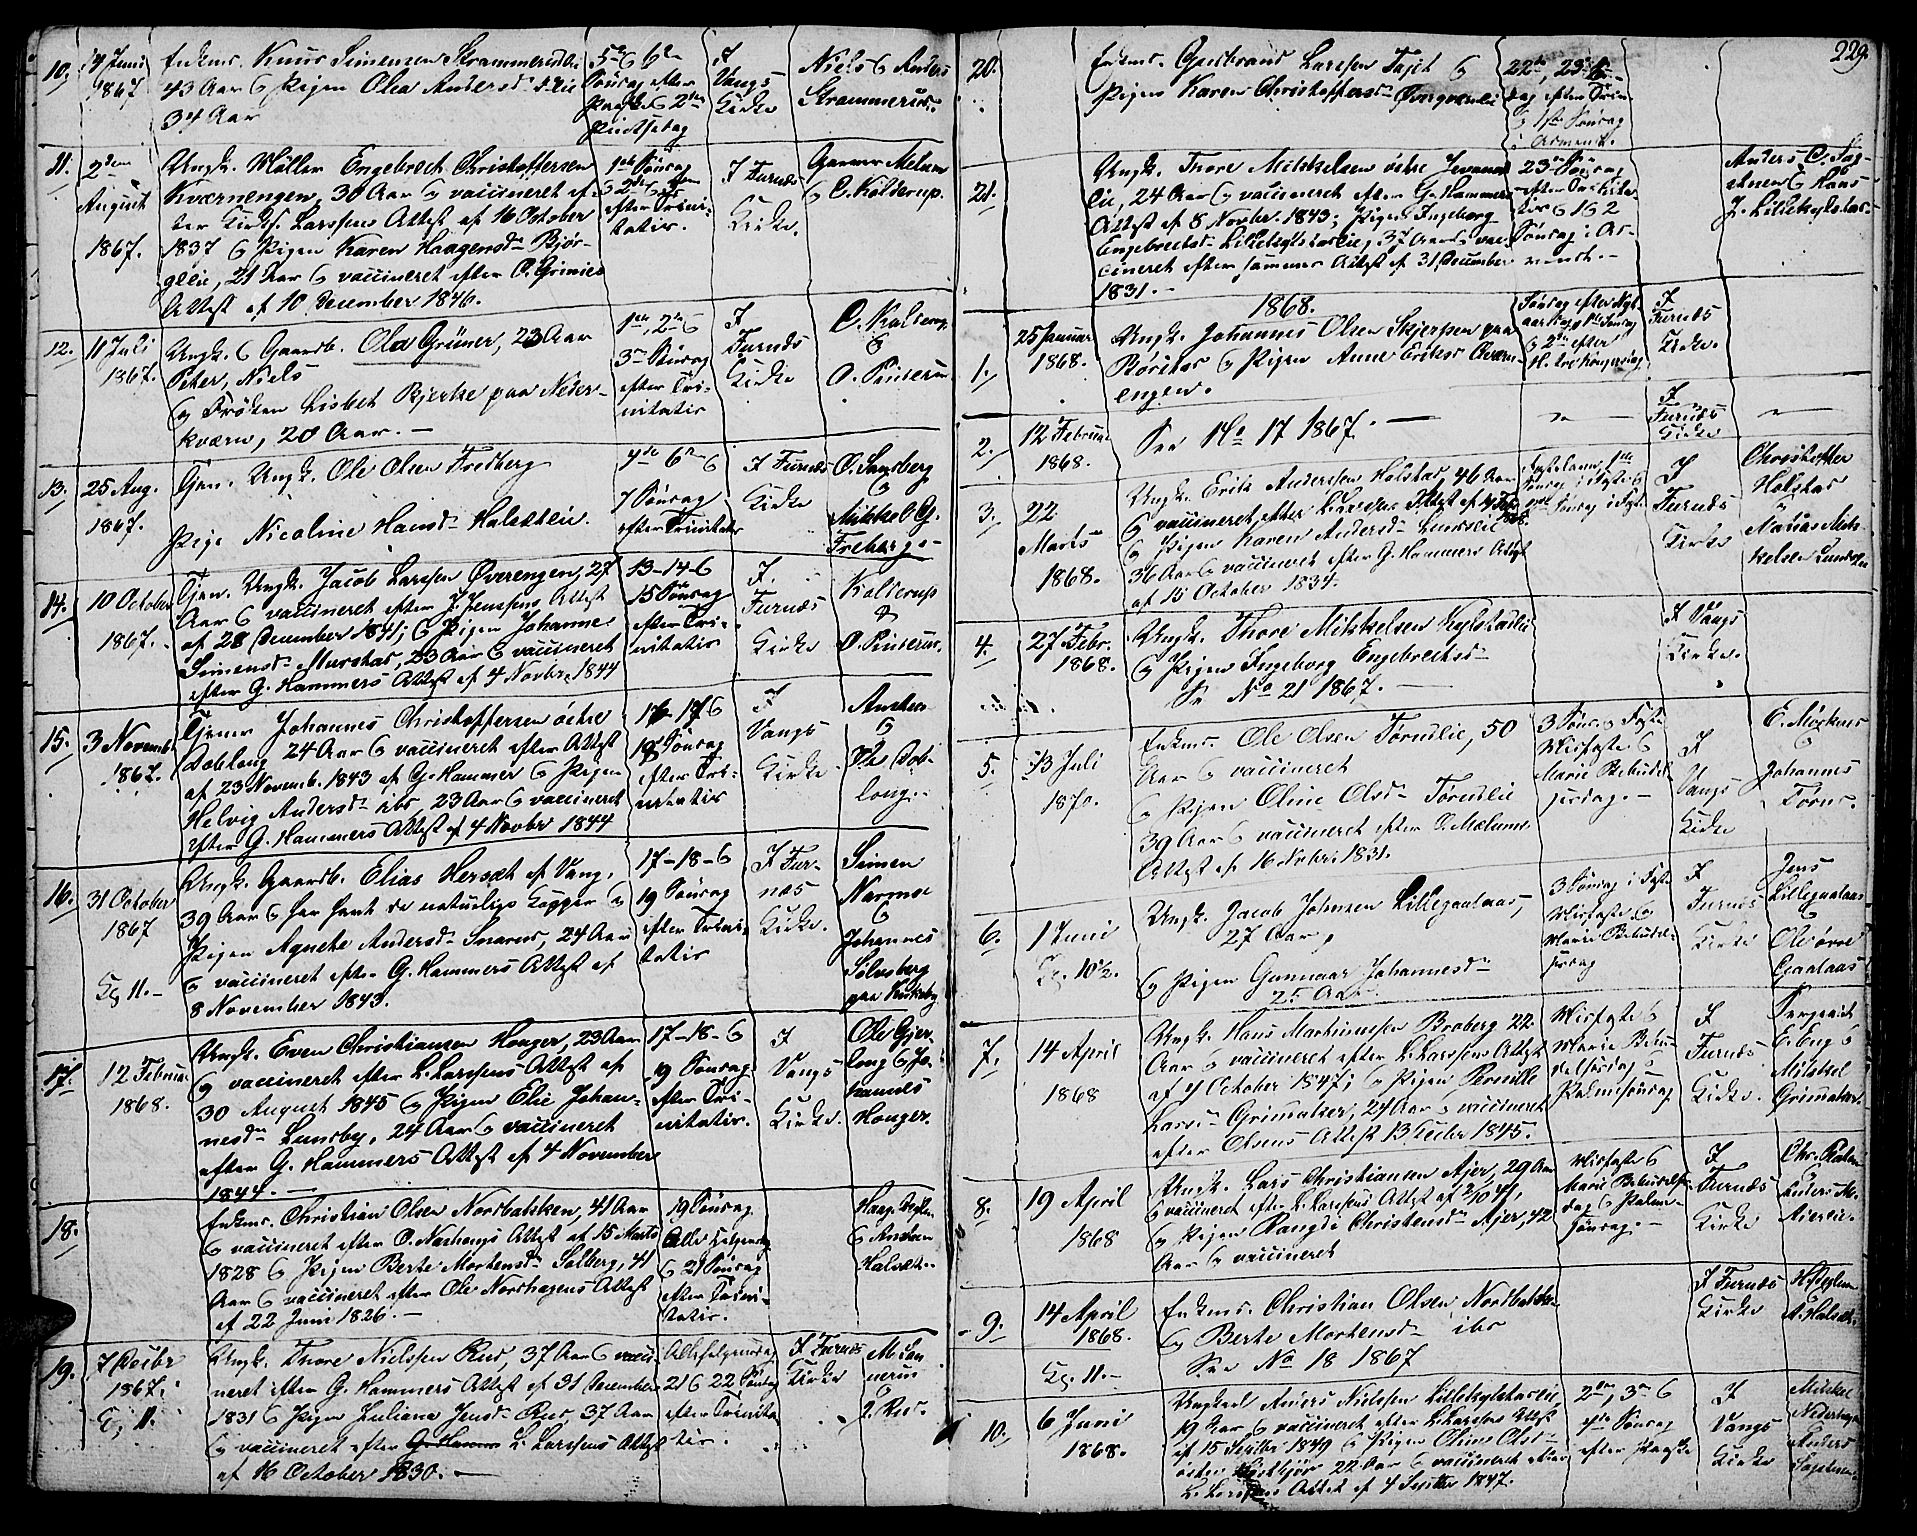 10. 14 Juni 1867
Enkem. Knud Simensen Skrammerudlie
43 Aar & Pigen Olea Andersd. ibid
34 Aar
5te & 6te
Søndag efter
Paaske & 2den
Pindsedag
I
Vangs
Kirke
Niels & Anders
Skrammerud.
11. 2den August 1867.
Ungk. Møller Engebrect Christoffersen
Kværnengen, 30 Aar & vaccineret ef-
ter Kirks. Larssens Attest af 16 October
1837 & Pigen Karen Haagensd. Bjør-
gelie, 21 Aar & vaccineret efter O. Grimies
Attest af 10 December 1846.
1ste Søndag
efter Trini-
tatis.
I Furnæs
Kirke.
Gunner Melum
& C. Kolderup.
12. 11 Juli 1867.
Ungk. & Gaardb. Ole Grüner, 23 Aar
Peter, Niels
og Frøken Lisbet Bjerke paa Neder-
kværn, 20 Aar. —
1ste, 2den &
3die Søndag
efter Tri-
nitatis
I
Furnæs
Kirke
C. Kolderup
&
O. Pinderud.
13. 25 Aug. 1867.
Tjen. Ungk. Ole Olsen Fredberg
Pige Nicoline Hansd. Halsetlie.
6te &
7 Søndag
efter Trinitatis
I Furnæs
Kirke
O. Sangberg
&
Mikkel G.
Freberg. -
14. 10 October 1867.
Tjen. Ungk. Jacob Larssen Øverengen, 27
Aar & vaccineret efter J. Jenssens Attest
af 28 December 1841; & Pigen Johanne
Simensd. Murstad, 23 Aar & vaccineret
efter G. Hammers Attest af 4 Novbr. 1844
13-14-&
15 Søndag
efter Tri-
nitatis
I.
Furnæs
Kirke
Kolderup
&
O. Pinderud.
15. 3 Novemb. 1867.
Tjener Johannes Christoffersen østre
Dobloug 24 Aar & vaccineret efter Attest
af 23 Novemb. 1843 af G. Hammer & Pigen
Helvig Andersd. ibd, 23 Aar & vaccineret
efter G. Hammers Attest af 4 Novbr 1844
16-17 &
18 Søndag
efter Tri-
nitatis
I
Vangs
Kirke.
Ole Dob-
loug. -
16. 31 October 1867
Kl. 11. -
Ungk. Gaardb. Elias Hersæt af Vang,
39 Aar & har havt de naturlige Kopper &
Pigen Agnethe Andersd. Snarud, 24 Aar
& vaccineret efter G. Hammers Attest af
8 November 1843.
17-18-&
19 Søndag
efter Trini-
tatis
I Fur-
næs
Kirke.
Simen
Narmo
&
Johannes
Sølvsberg
17. 12 Februar 1868.
Ungk. Even Christiansen Honger, 23 Aar
& vaccineret efter L. Larssens Attest af
30 August 1845 & Pigen Elie Johan-
nesd. Lunsby, 24 Aar & vaccineret
efter G. Hammers Attest af 4 November
1844. —
17-18-&
19 Søndag
efter Tri-
nitatis.
I
Vangs
Kirke.
Ole Gjer-
long & Jo-
hannes
Honger.
18.
Enkem. Christian Olsen Nordbakken, 41 Aar
& vaccineret efter O. Narhougs Attest af 15 Marts
1828 & Pigen Berte Mortensd. Solberg, 41
Aar & vaccineret efter Ole Nordhagens Attest
af 22 Juni 1826. —
19 Søndag
Alle Helgensdag
& 21 Søndag
efter Trini-
tatis.
19. 7 Decbr 1867.
Kl. 11.
Ungk. Thore Nielssen Rud, 37 Aar & vacci-
neret efter G. Hammers Attest af 31 December
1831 & Pigen Juliana Jensd. Rud, 37 Aar
& vaccineret efter L. Larssens Attest
af 16 October 1830. —
Allehelgensdag
21 & 22 Søndag
efter Trinita-
tis.
I Furnæs
Kirke
229.
20.
Enkem. Gudbrand Larssen Tajet &
Pigen Karen Christoffersd. Øvergaardlie
22de, 23de
dag efter Trin.
& 1ste Søndag
i Advent. -
21.
Ungk. Thore Mikkelsen østre
lie, 24 Aar & vaccineret efter G. Hammers
Attest af 8 Novbr. 1843; Pigen Ingeborg
Engebrectsd. Lillekylstadlie, 37 Aar & vac-
cineret efter sammes Attest af 31 December
1831. -
23de Søndag
efter Trinita-
tis & 1 & 2
Søndag i Ad-
vent. -
Anders C. Sog-
stuen & Hans
J. Lillekylstad. -
1868.
1. 25 Januar 1868.
Ungk. Johannes Olsen Skjerpen paa
Røristad & Pigen Anne Eriksd Kværn-
engen.
Søndag efter Nyt-
aarsdag 1ste Søndag
& 2den efter
H. tre Kongersdag
I
Furnæs
Kirke.
2. 12 Februar 1868.
See No 17 1867. —
I
Furnæs
Kirke
3. 22 Marts 1868.
Ungk. Erik Anderssen Holstad, 46 Aar
& vaccineret efter L. Larssens Attest af
& Pigen Karen Andersd. Lundelie
36 Aar & vaccineret efter G. Hammers Attest
af 15 October 1834.
Fastelavn, 1ste
Søndag i Faste &
Søndag i Faste
I
Furnæs
Kirke
Christoffer
Holstad
Mathias Mik-
kelsen Lundelie
4. 27 Febr. 1868.
Ungk. Thore Mikkelsen Kylstadlie
& Pigen Ingeborg Engebrectsd.
Se No 21 1867. —
I Vangs
Kirke.
5. 13 Juli 1870.
Enkem. Ole Olsen Tørudlie, 50
Aar & vaccineret
& Pigen Oline Olsd. Tørudlie
39 Aar & vaccineret efter O. Mælums
Attest af 16 Febr. 1831.
3 Sønd. i Faste
Midfaste &
Marie Bebudel-
sesdag. -
I
Vangs
Kirke
E. Mørkved
&
Johannes
Torud.
6. 1 Juni
Kl. 10½.
Ungk. Jacob Johnsen Lillegaalaas,
27 Aar,
& Pigen Gunnaar Johannesd.
25 Aar.
3 Søndag i Faste
Midfaste &
Marie Bebudel-
sesdag
I
Furnæs
Kirke
Jens
Lillegaalaas
&
Ole øvre
Gaalaas
7. 14 April 1868
Ungk. Hans Martinussen Broberg 22
Aar & vaccineret efter L. Larssens Attest
af 4 October 1847; & Pigen Pernille
Larsd. Grimaker, 24 Aar & vaccineret
efter Olsens Attest 13 Decbr 1845.
Midfaste &
Marie Bebu-
delsesdag &
Palmesøndag
I
Furnæs
Kirke.
Sergeant
E. Eng &
Mikkel
Grimaker.
8. 19 April 1868
Ungk. Lars Christiansen Ajer, 29 Aar
& vaccineret efter L. Larsens Attest af 2/10 41,
& Pigen Rangdi Christensd. Ajer, 42
Aar & vaccineret
Midfaste &
Marie Bebudelses-
dag & Palme-
søndag. -
I
Furnæs
Kirke
Anders M.
Ajerlie.
9. 14 April 1868.
Kl. 11. -
Enkem. Christian Olsen Nordbakken
& Berte Mortensd. ibd
See No 18 1867
I Furnæs
Kirke
10. 6 Juni 1868.
Ungkarl Anders Nielssen Lillekylstadlie,
19 Aar & vaccineret efter L. Larssens Attest
af 15 Septbr 1849 & Pigen Oline Olsd.
22 Aar & vaccineret efter
L. Larssens Attest af 4 Septbr 1847.
2den, 3die &
4de Søndag
efter Paaske
I
Vangs
Kirke
Mikkel
Anders